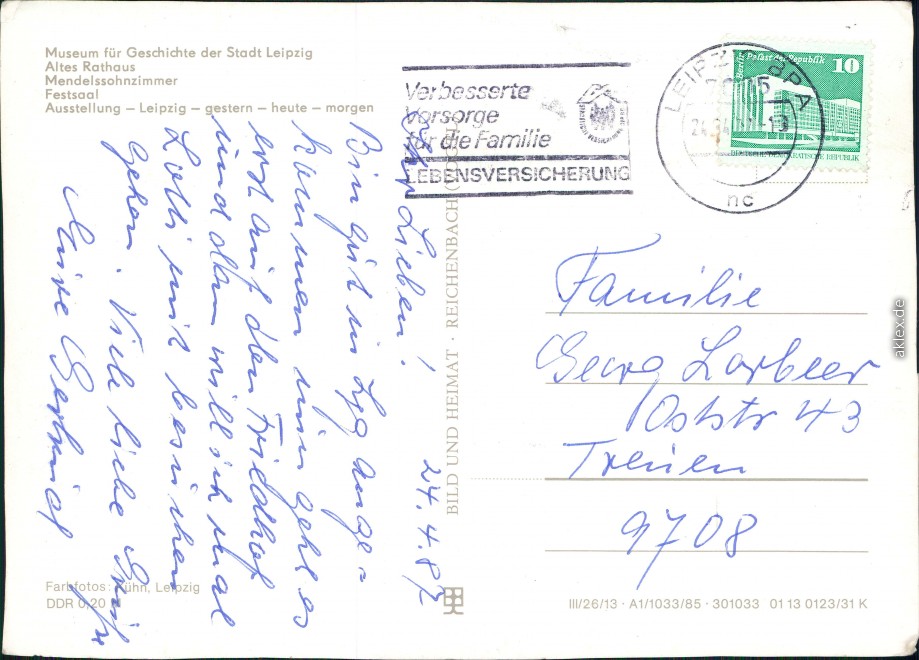 Museum für Geschichte der Stadt Leipzig
Altes Rathaus
Mendelssohnzimmer
Festsaal
Ausstellung – Leipzig – gestern – heute – morgen
Verbesserte
Vorsorge
für die Familie
LEBENSVERSICHERUNG
LEIPZIG BPA
nc
Berlin, Palast der Republik 10
DEUTSCHE DEMOKRATISCHE REPUBLIK
24.4.87
Ihr Lieben!
Bin gut in Lpg ange-
kommen nun geht es
erst auf den Friedhof
und dann will ich mal
Lotti mit besuchen
gehen. Viele liebe Grüße
Eure Gertrud
BILD UND HEIMAT · REICHENBACH
Familie
Georg Lorbeer
Oststr 43
Treuen
9708
Farbfotos: Kühn, Leipzig
DDR 0,20
III/26/13 · A1/1033/85 · 301033 01 13 0123/31 K
aklex.de